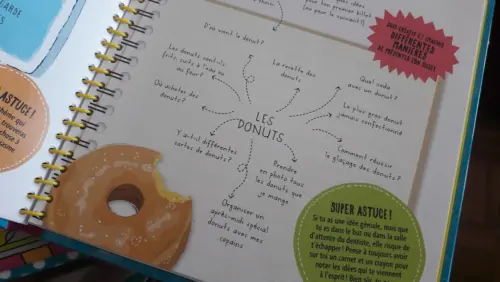 ARDE
ES
ton premier billet
(ou pour la curiosité!)
POUR CRÉATIF ET CITATIONS
DIFFÉRENTES
MANIÈRES
DE PRÉSENTER TON SUJET
D'où vient le donut?
Les donuts sont-ils
frits, cuits à l'eau ou
au four?
La recette des
donuts
Quel soda
avec un donut?
Où acheter des
donuts?
Le plus gros donut
jamais confectionné
LES
DONUTS
Y a-t-il différentes
sortes de donuts?
Comment réussir
le glaçage des donuts?
Prendre
en photo tous
les donuts que
je mange
Organiser un
après-midi spécial
donuts avec mes
copains
ASTUCE!
thème qui
trouveras
chose à
SUPER ASTUCE!
Si tu as une idée géniale, mais que
tu es dans le bus ou dans la salle
d'attente du dentiste, elle risque de
t'échapper! Pense à toujours avoir
sur toi un carnet et un crayon pour
noter les idées qui te viennent
à l'esprit!